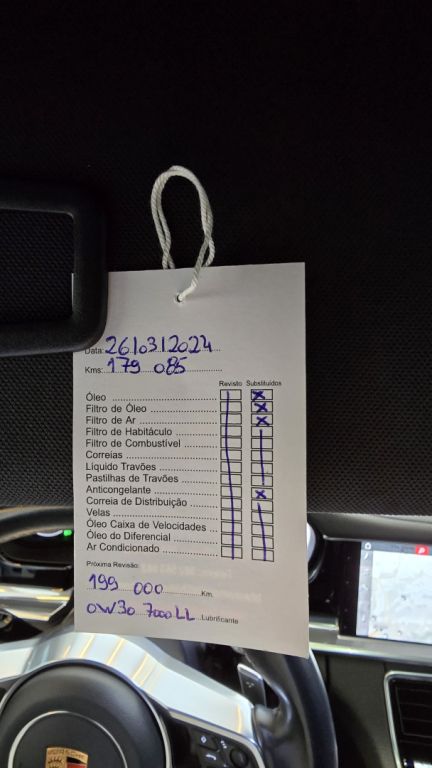 Data: 26/03/2024
Kms: 179 085
Revisto Substituídos
Óleo
Filtro de Óleo
Filtro de Ar
Filtro de Habitáculo
Filtro de Combustível
Correias
Líquido Travões
Pastilhas de Travões
Anticongelante
Correia de Distribuição
Velas
Óleo Caixa de Velocidades
Óleo do Diferencial
Ar Condicionado
Próxima Revisão:
199 000 Km.
0W30 7000LL Lubrificante